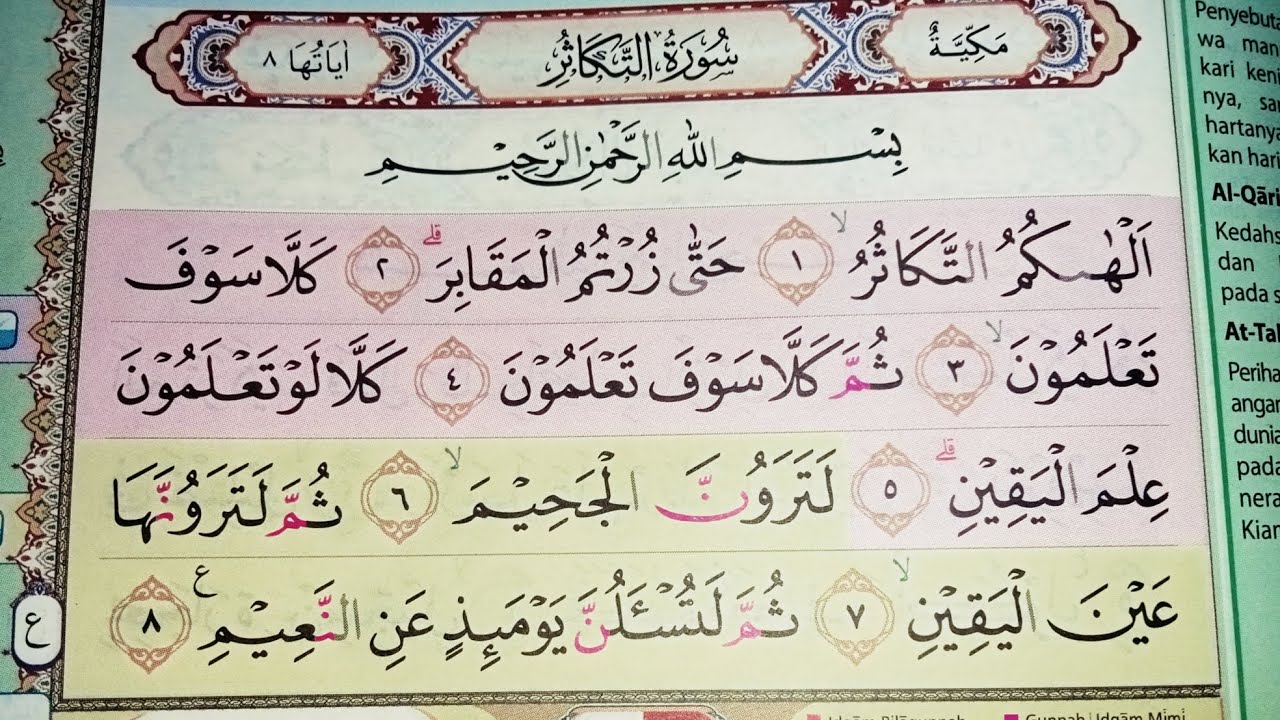 مَكِّيَّةٌ
سُوْرَةُ التَّكَاثُرِ
اٰيَاتُهَا ٨
بِسْمِ اللّٰهِ الرَّحْمٰنِ الرَّحِيْمِ
اَلْهٰىكُمُ التَّكَاثُرُۙ ١ حَتّٰى زُرْتُمُ الْمَقَابِرَۗ ٢ كَلَّا سَوْفَ
تَعْلَمُوْنَۙ ٣ ثُمَّ كَلَّا سَوْفَ تَعْلَمُوْنَ ٤ كَلَّا لَوْ تَعْلَمُوْنَ
عِلْمَ الْيَقِيْنِۗ ٥ لَتَرَوُنَّ الْجَحِيْمَۙ ٦ ثُمَّ لَتَرَوُنَّهَا
عَيْنَ الْيَقِيْنِۙ ٧ ثُمَّ لَتُسْـَٔلُنَّ يَوْمَىِٕذٍ عَنِ النَّعِيْمِ ࣖ ٨
ع
Penyebuta
wa man
kari keni
nya, sa
hartanya
kan hari
Al-Qāri
Kedahs
dan
pada s
At-Tak
Periha
angan
dunia
pada
nera
Kian
Idgām Bilāgunnah
Gunnah Idgām Mīmī